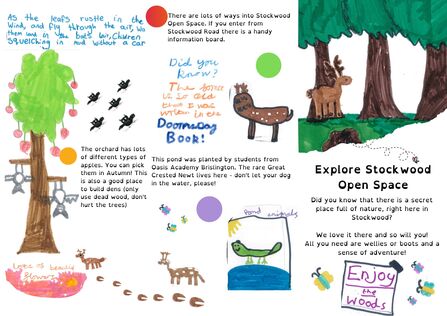 As the leafs rustle in the
Wind, and fly through the air,
squelching in mud without a car
The orchard has lots
of different types of
apples. You can pick
them in Autumn! This
is also a good place
to build dens (only
use dead wood, don't
hurt the trees)
Lots of beauty
flowers
There are lots of ways into Stockwood
Open Space. If you enter from
Stockwood Road there is a handy
information board.
Did you
Know?
The
is so old
that I was
written in the
Doomsday
BOOK!
This pond was planted by students from
Oasis Academy Brislington. The rare Great
Crested Newt lives here - don't let your dog
in the water, please!
Pond animals
Explore Stockwood
Open Space
Did you know that there is a secret
place full of nature, right here in
Stockwood?
We love it there and so will you!
All you need are wellies or boots and a
sense of adventure!
Enjoy
the
WOODS